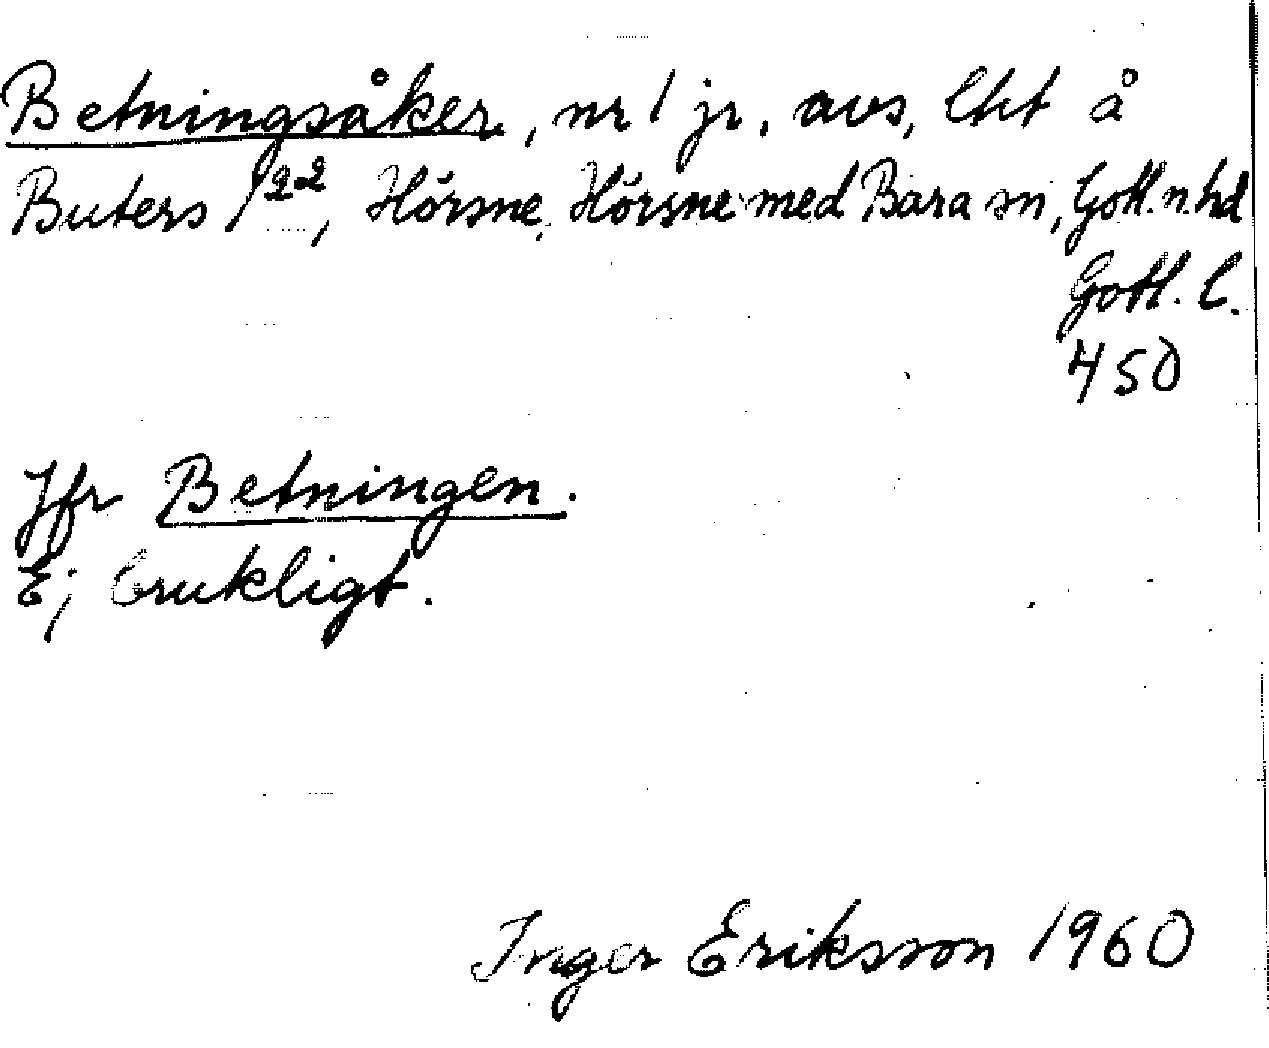 Betningsåker, nr 1 jr, avs, Ckt å
Buters 1²², Hörsne, Hörsne med Bara sn, Gotl. n. hd
Gotl. l.
450
Jfr Betningen.
Ej brukligt.
Inger Eriksson 1960